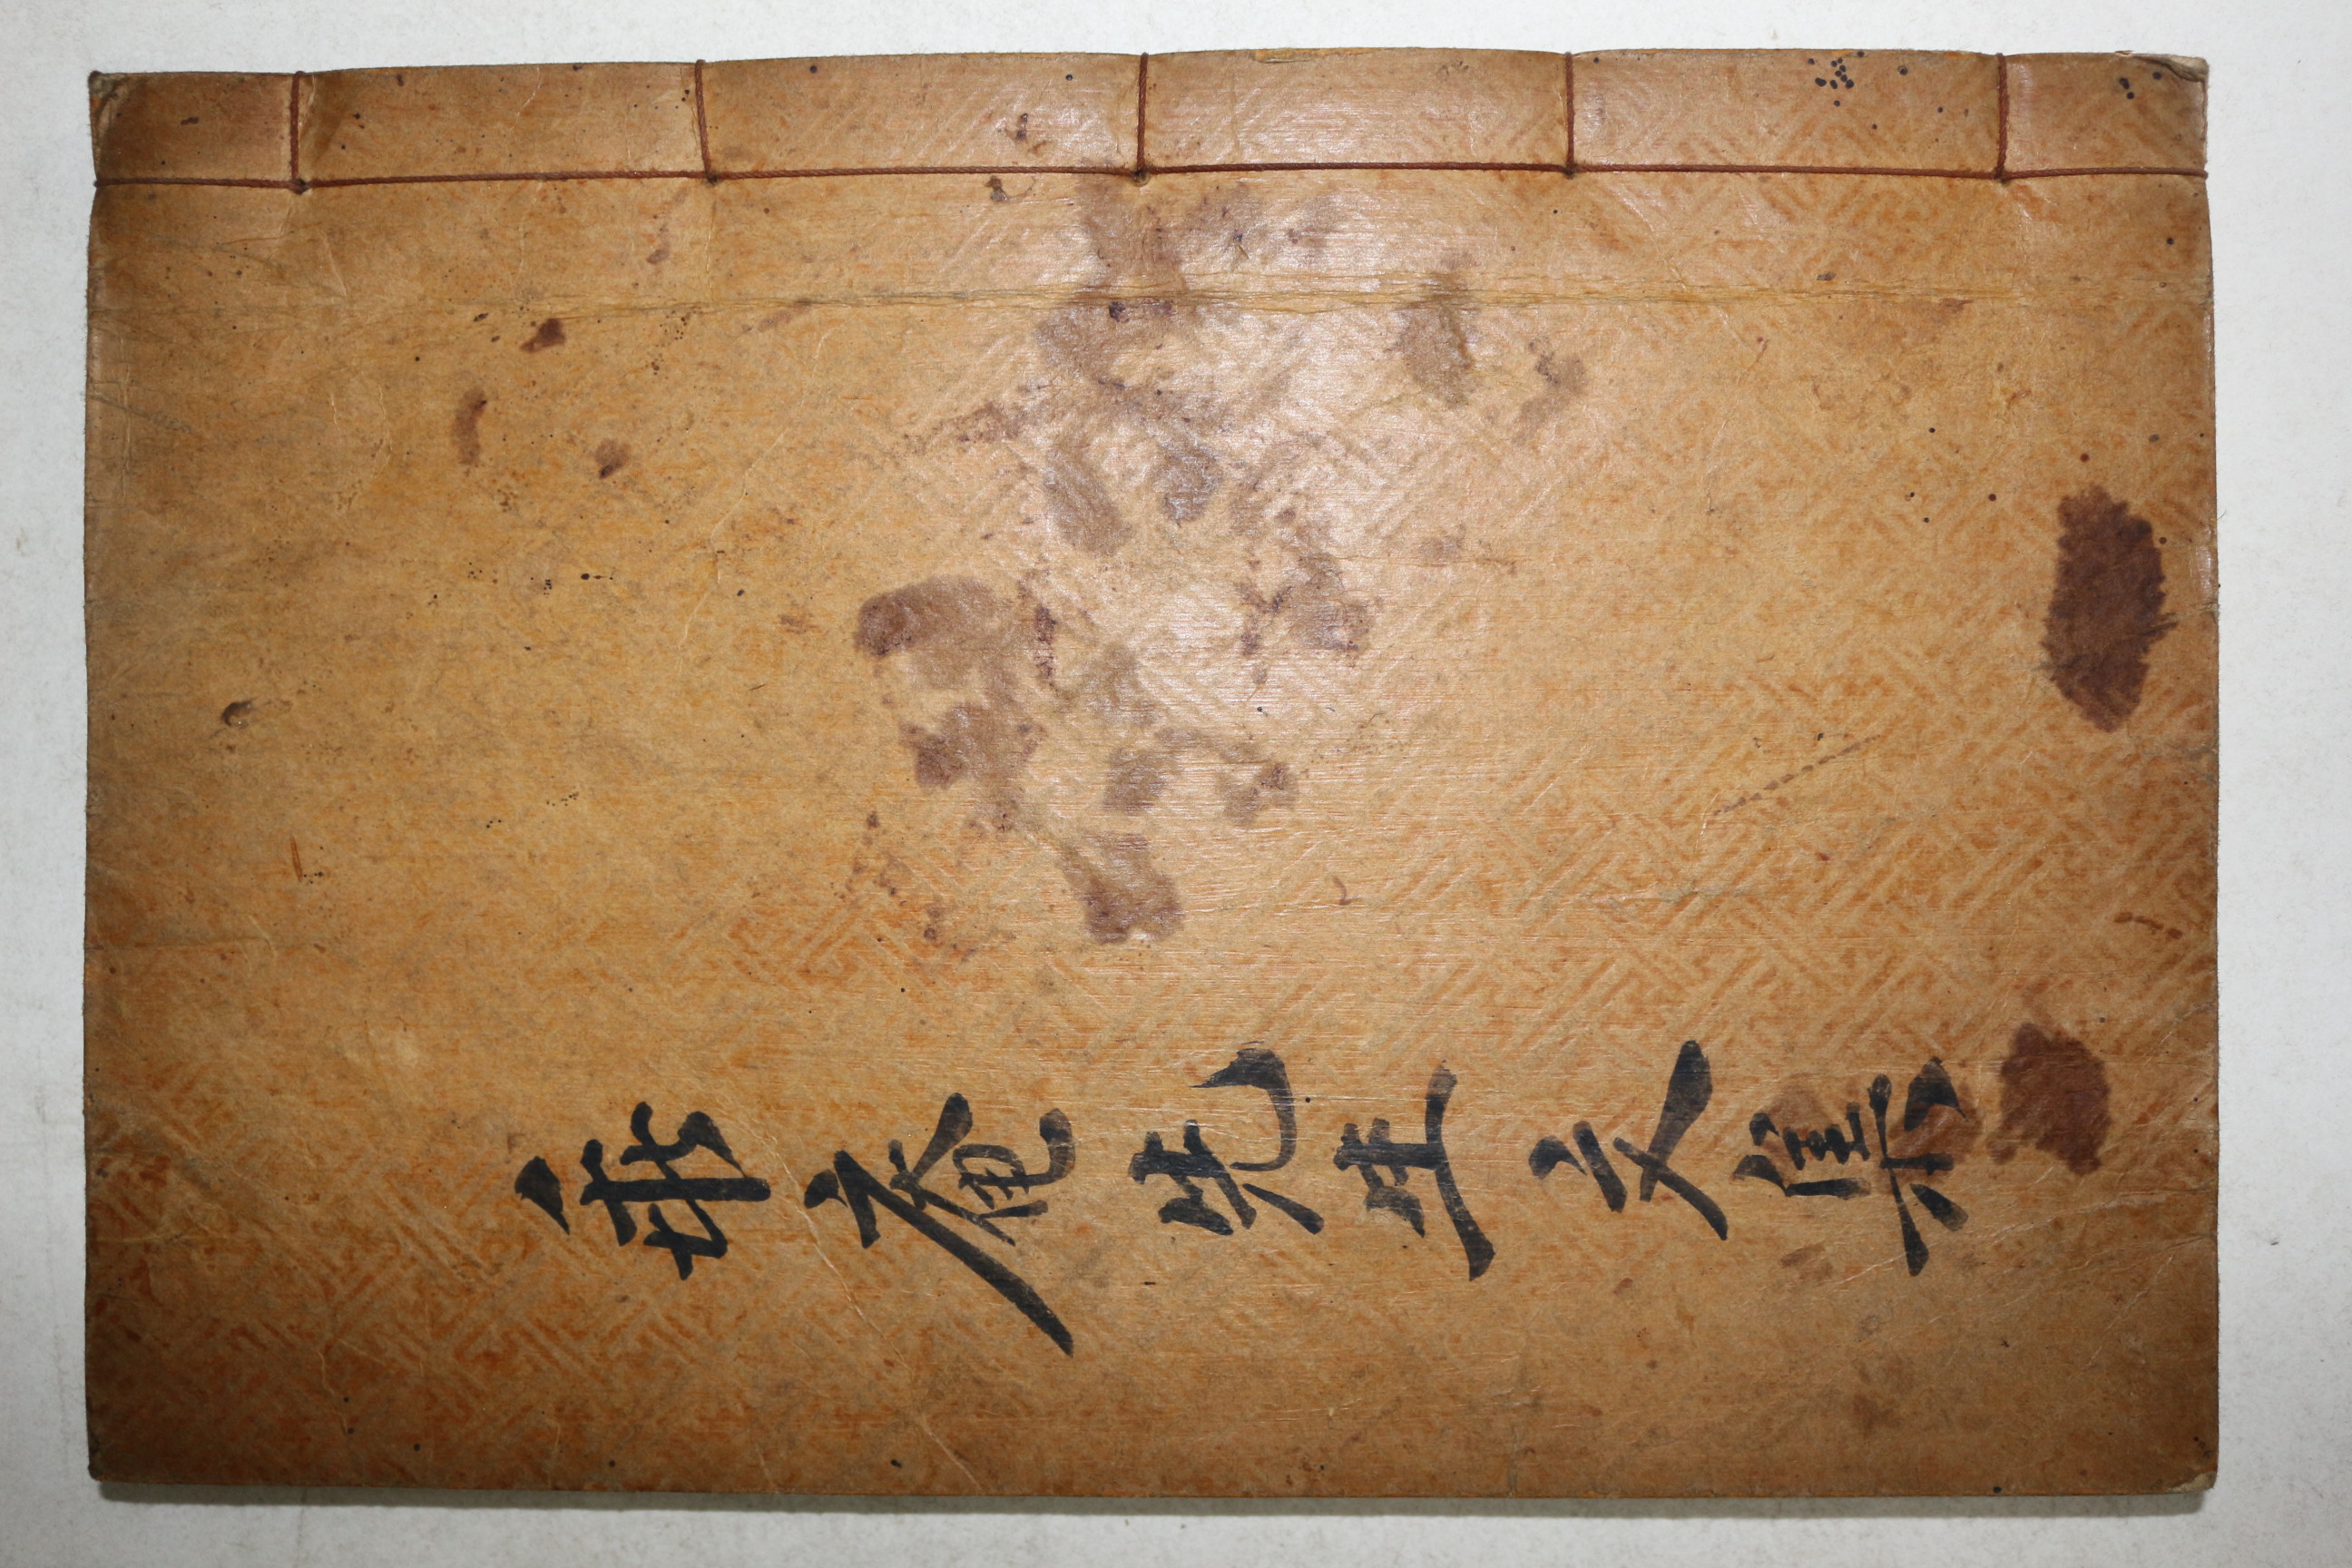 乖庵先生文集